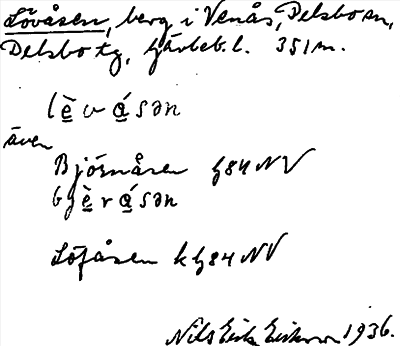 Lövåsen, berg i Venås, Delsbo sn,
Delsbo tg, Gävleb. l. 351 m.
lèvásən
även
Björnåsen g84NV
bjèrásən
Löfåsen k g84NV
Nils Erik Eriksson 1936.